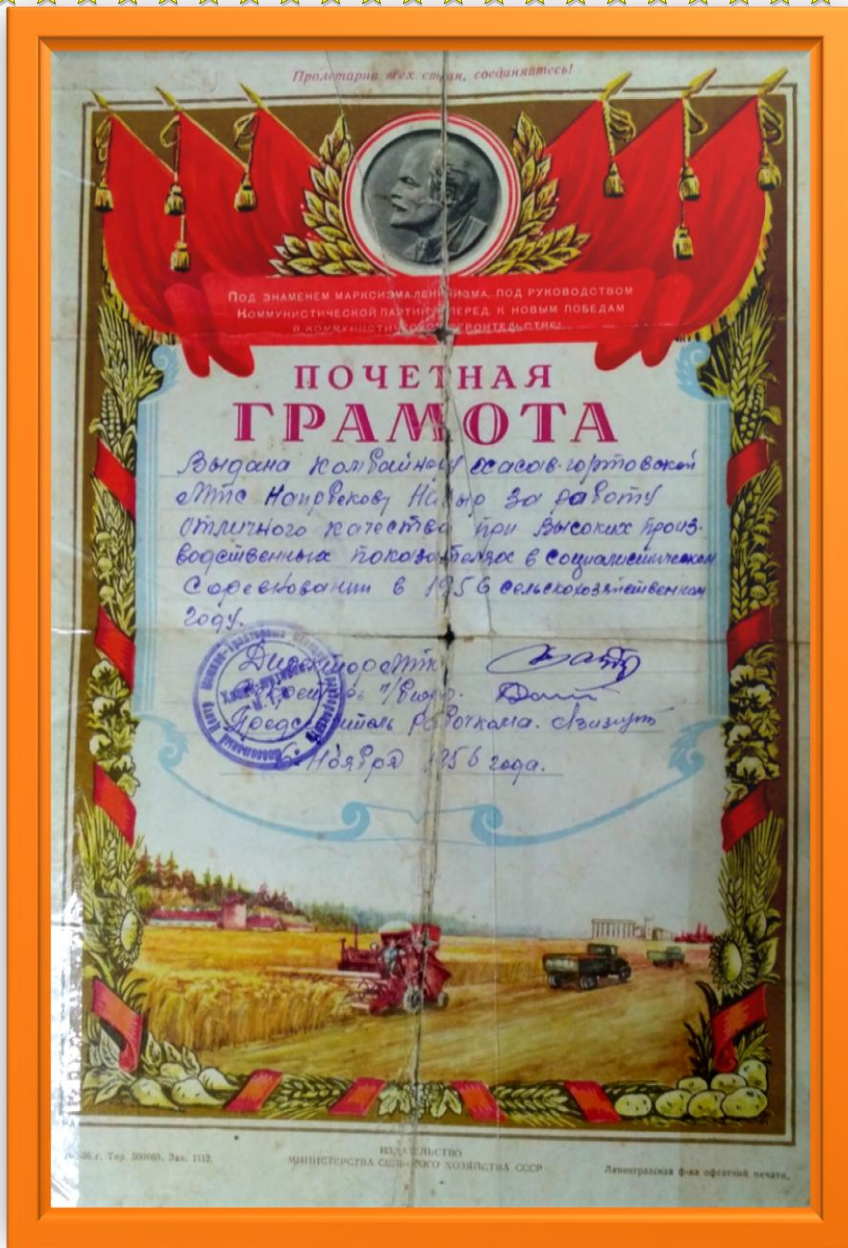 Пролетарии всех стран, соединяйтесь!
Под знаменем марксизма-ленинизма, под руководством
Коммунистической партии, вперед, к новым победам
в коммунистическом строительстве!
ПОЧЕТНАЯ
ГРАМОТА
Выдана комбайнеру хасав-юртовской
МТС за работу
отличного качества при высоких произ-
водственных показателях в социалистическом
соревновании в 1956 сельскохозяйственном
году.
Директор МТС
Секретарь
Председатель рабочкома.
6 Ноября 1956 года.
Зак. 1112.
ИЗДАТЕЛЬСТВО
МИНИСТЕРСТВА СЕЛЬСКОГО ХОЗЯЙСТВА СССР
Ленинградская ф-ка офсетной печати.